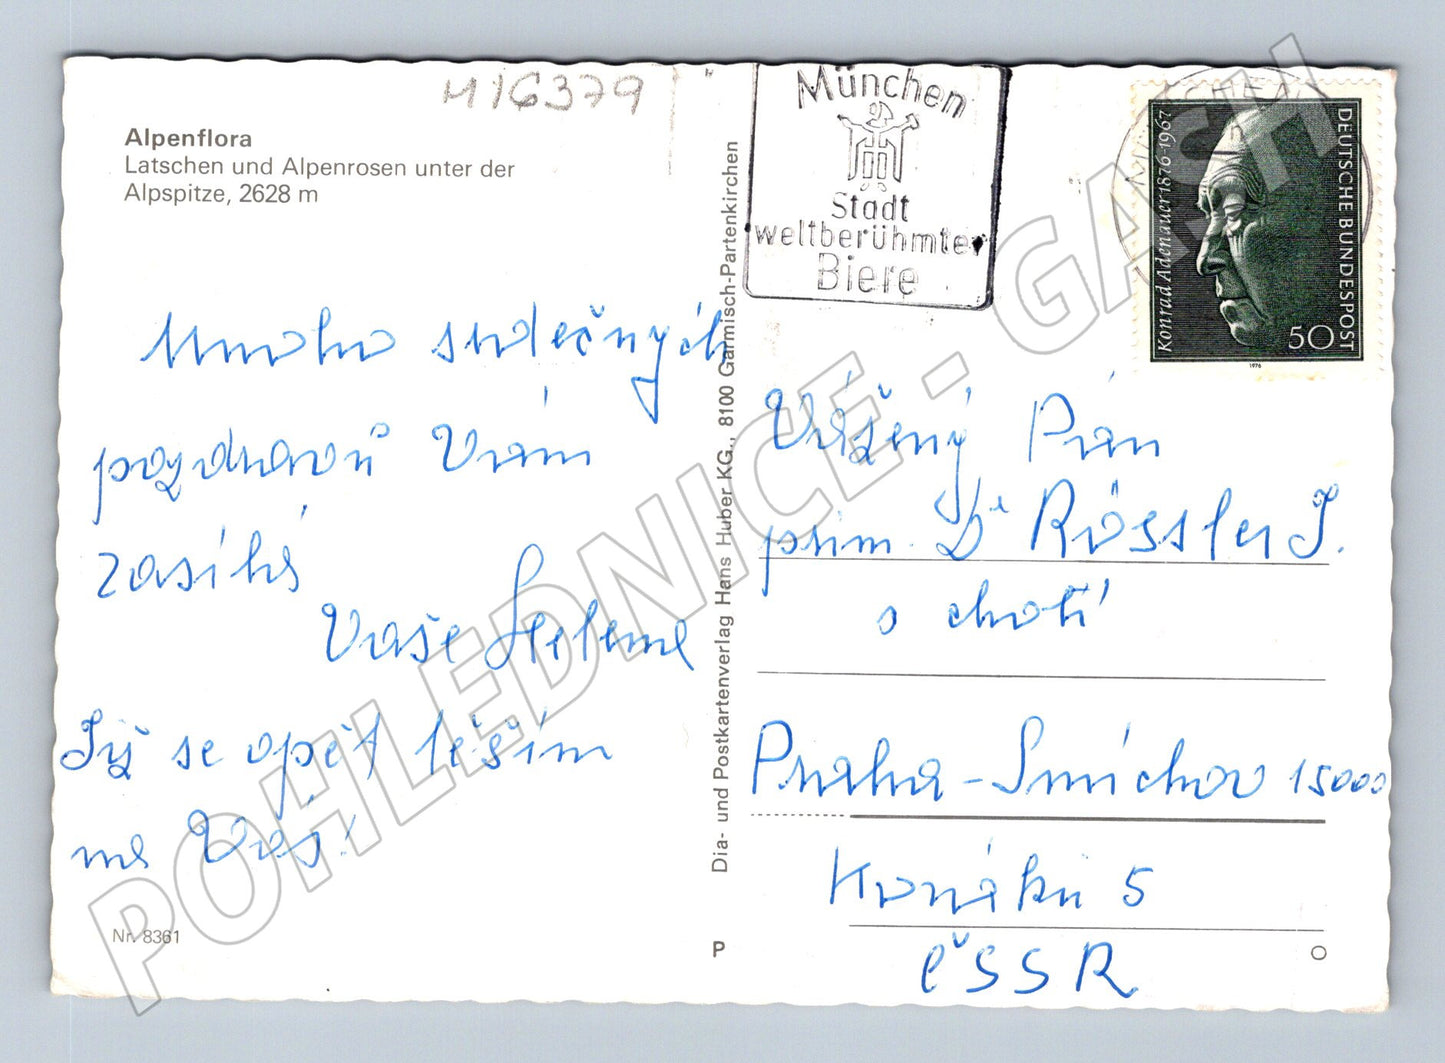 M16379
Alpenflora
Latschen und Alpenrosen unter der
Alpspitze, 2628 m
Mnoho srdečných
pozdravů Vám
zasílá
Vaše Helena
Již se opět těším
na Vás!
Nr. 8361
Dia- und Postkartenverlag Hans Huber KG., 8100 Garmisch-Partenkirchen
P
München
Stadt
weltberühmter
Biere
MÜNCHEN
Konrad Adenauer 1876-1967
DEUTSCHE BUNDESPOST
50
1976
Vážený Pán
prim. Dr Rössler J.
s chotí
Praha - Smíchov 15000
Kováků 5
ČSSR
POHLEDNICE - GASH